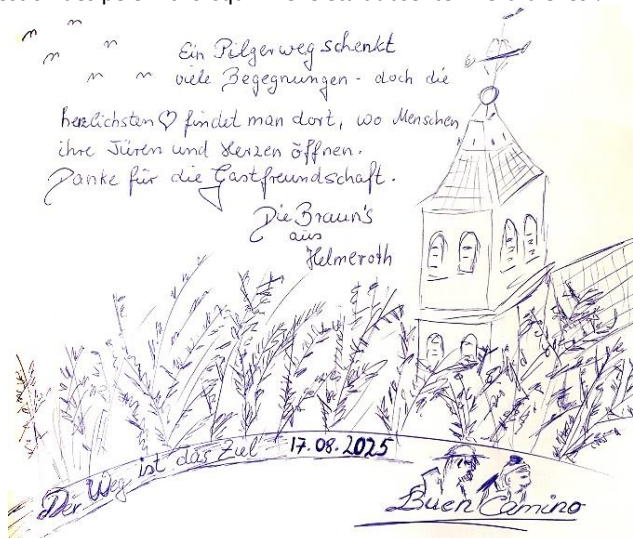 Ein Pilgerweg schenkt
viele Begegnungen - doch die
herzlichsten ♡ findet man dort, wo Menschen
ihre Türen und Herzen öffnen.
Danke für die Gastfreundschaft.
Die Braun's
aus
Helmeroth
Der Weg ist das Ziel 17.08.2025
Buen Camino